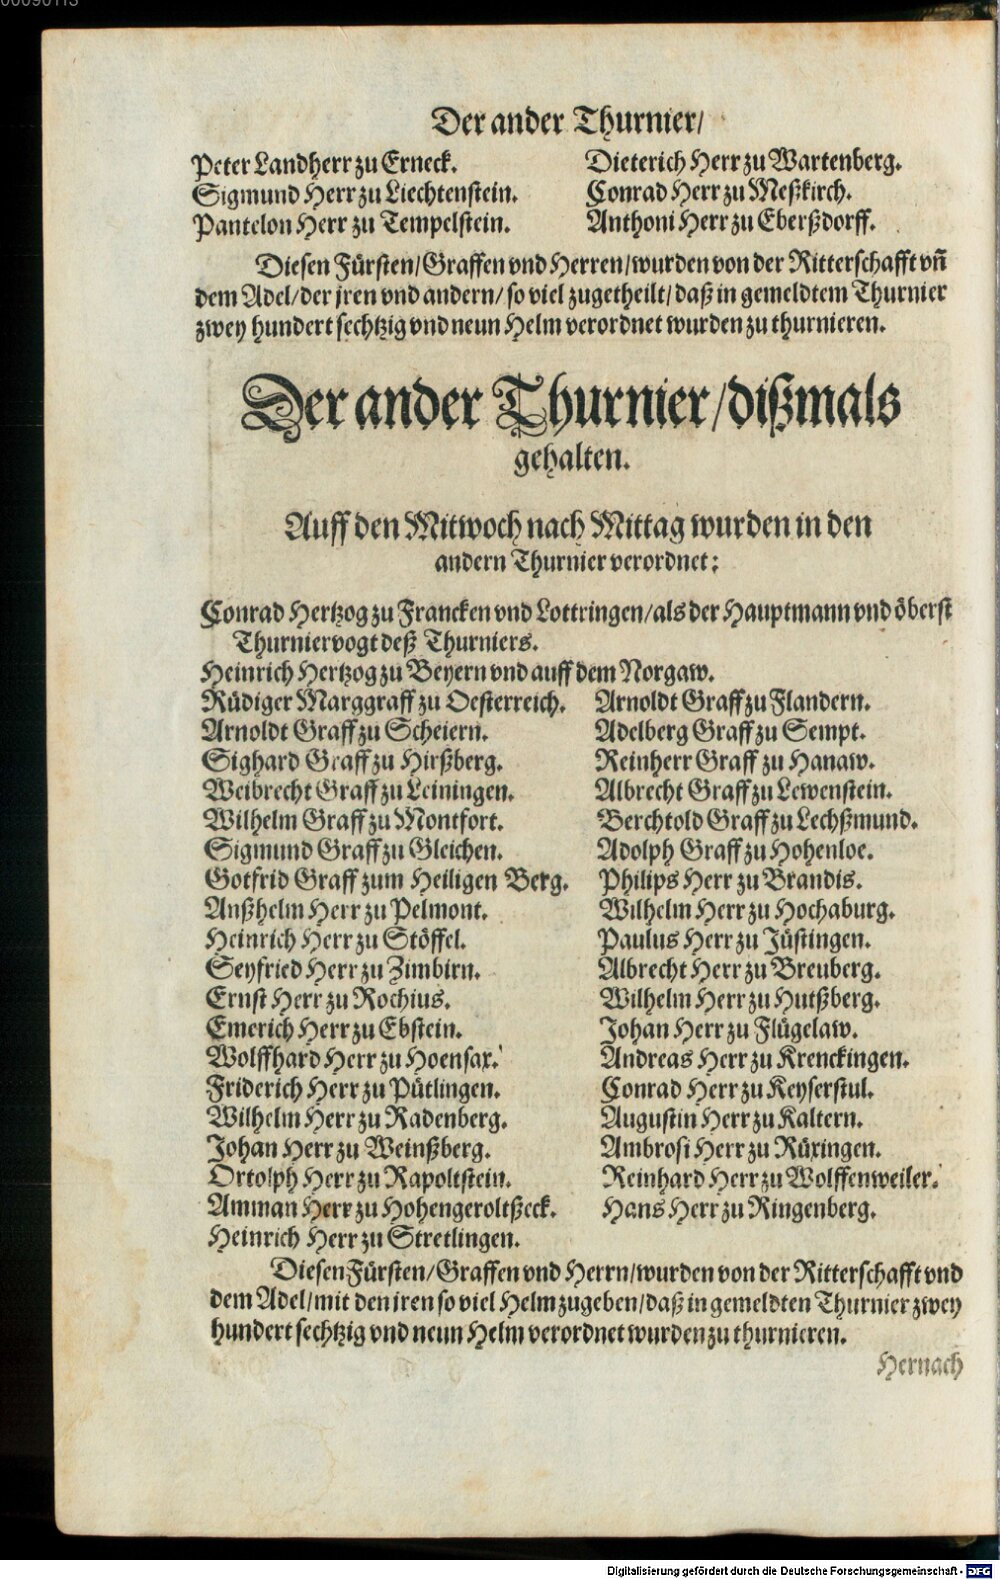 Der ander Thurnier/
Peter Landherr zu Erneck.
Sigmund Herr zu Liechtenstein.
Pantelon Herr zu Tempelstein.
Dieterich Herr zu Wartenberg.
Conrad Herr zu Meßkirch.
Anthoni Herr zu Eberßdorff.
Diesen Fürsten/Graffen vnd Herren/wurden von der Ritterschafft vñ
dem Adel/der jren vnd andern/so viel zugetheilt/daß in gemeldtem Thurnier
zwey hundert sechtzig vnd neun Helm verordnet wurden zu thurnieren.
Der ander Thurnier/dißmals
gehalten.
Auff den Mitwoch nach Mittag wurden in den
andern Thurnier verordnet:
Conrad Hertzog zu Francken vnd Lottringen/als der Hauptmann vnd öberst
Thurniervogt deß Thurniers.
Heinrich Hertzog zu Beyern vnd auff dem Norgaw.
Rüdiger Marggraff zu Oesterreich.
Arnoldt Graff zu Scheiern.
Sighard Graff zu Hirßberg.
Weibrecht Graff zu Leiningen.
Wilhelm Graff zu Montfort.
Sigmund Graff zu Gleichen.
Gotfrid Graff zum Heiligen Berg.
Anßhelm Herr zu Pelmont.
Heinrich Herr zu Stöffel.
Seyfried Herr zu Zimbirn.
Ernst Herr zu Rochius.
Emerich Herr zu Ebstein.
Wolffhard Herr zu Hoensax.
Friderich Herr zu Pütlingen.
Wilhelm Herr zu Radenberg.
Johan Herr zu Weinßberg.
Ortolph Herr zu Rapoltstein.
Amman Herr zu Hohengeroltßeck.
Heinrich Herr zu Stretlingen.
Arnoldt Graff zu Flandern.
Adelberg Graff zu Sempt.
Reinherr Graff zu Hanaw.
Albrecht Graff zu Lewenstein.
Berchtold Graff zu Lechßmund.
Adolph Graff zu Hohenloe.
Philips Herr zu Brandis.
Wilhelm Herr zu Hochaburg.
Paulus Herr zu Jüstingen.
Albrecht Herr zu Breuberg.
Wilhelm Herr zu Hutßberg.
Johan Herr zu Flügelaw.
Andreas Herr zu Krenckingen.
Conrad Herr zu Keyserstul.
Augustin Herr zu Kaltern.
Ambrosi Herr zu Rüxingen.
Reinhard Herr zu Wolffenweiler.
Hans Herr zu Ringenberg.
Diesen Fürsten/Graffen vnd Herrn/wurden von der Ritterschafft vnd
dem Adel/mit den jren so viel Helm zugeben/daß in gemeldten Thurnier zwey
hundert sechtzig vnd neun Helm verordnet wurden zu thurnieren.
Hernach
Digitalisierung gefördert durch die Deutsche Forschungsgemeinschaft - DFG